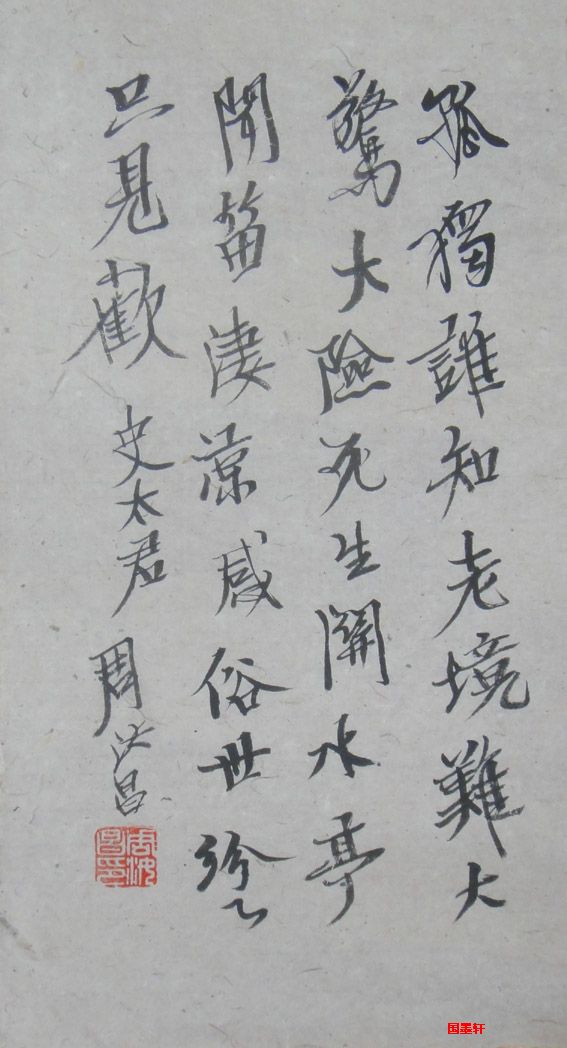 孤獨誰知老境難大
驚大險死生關水亭
聞笛淒涼感俗世紛〻
只見歡
史太君
周汝昌
国墨轩